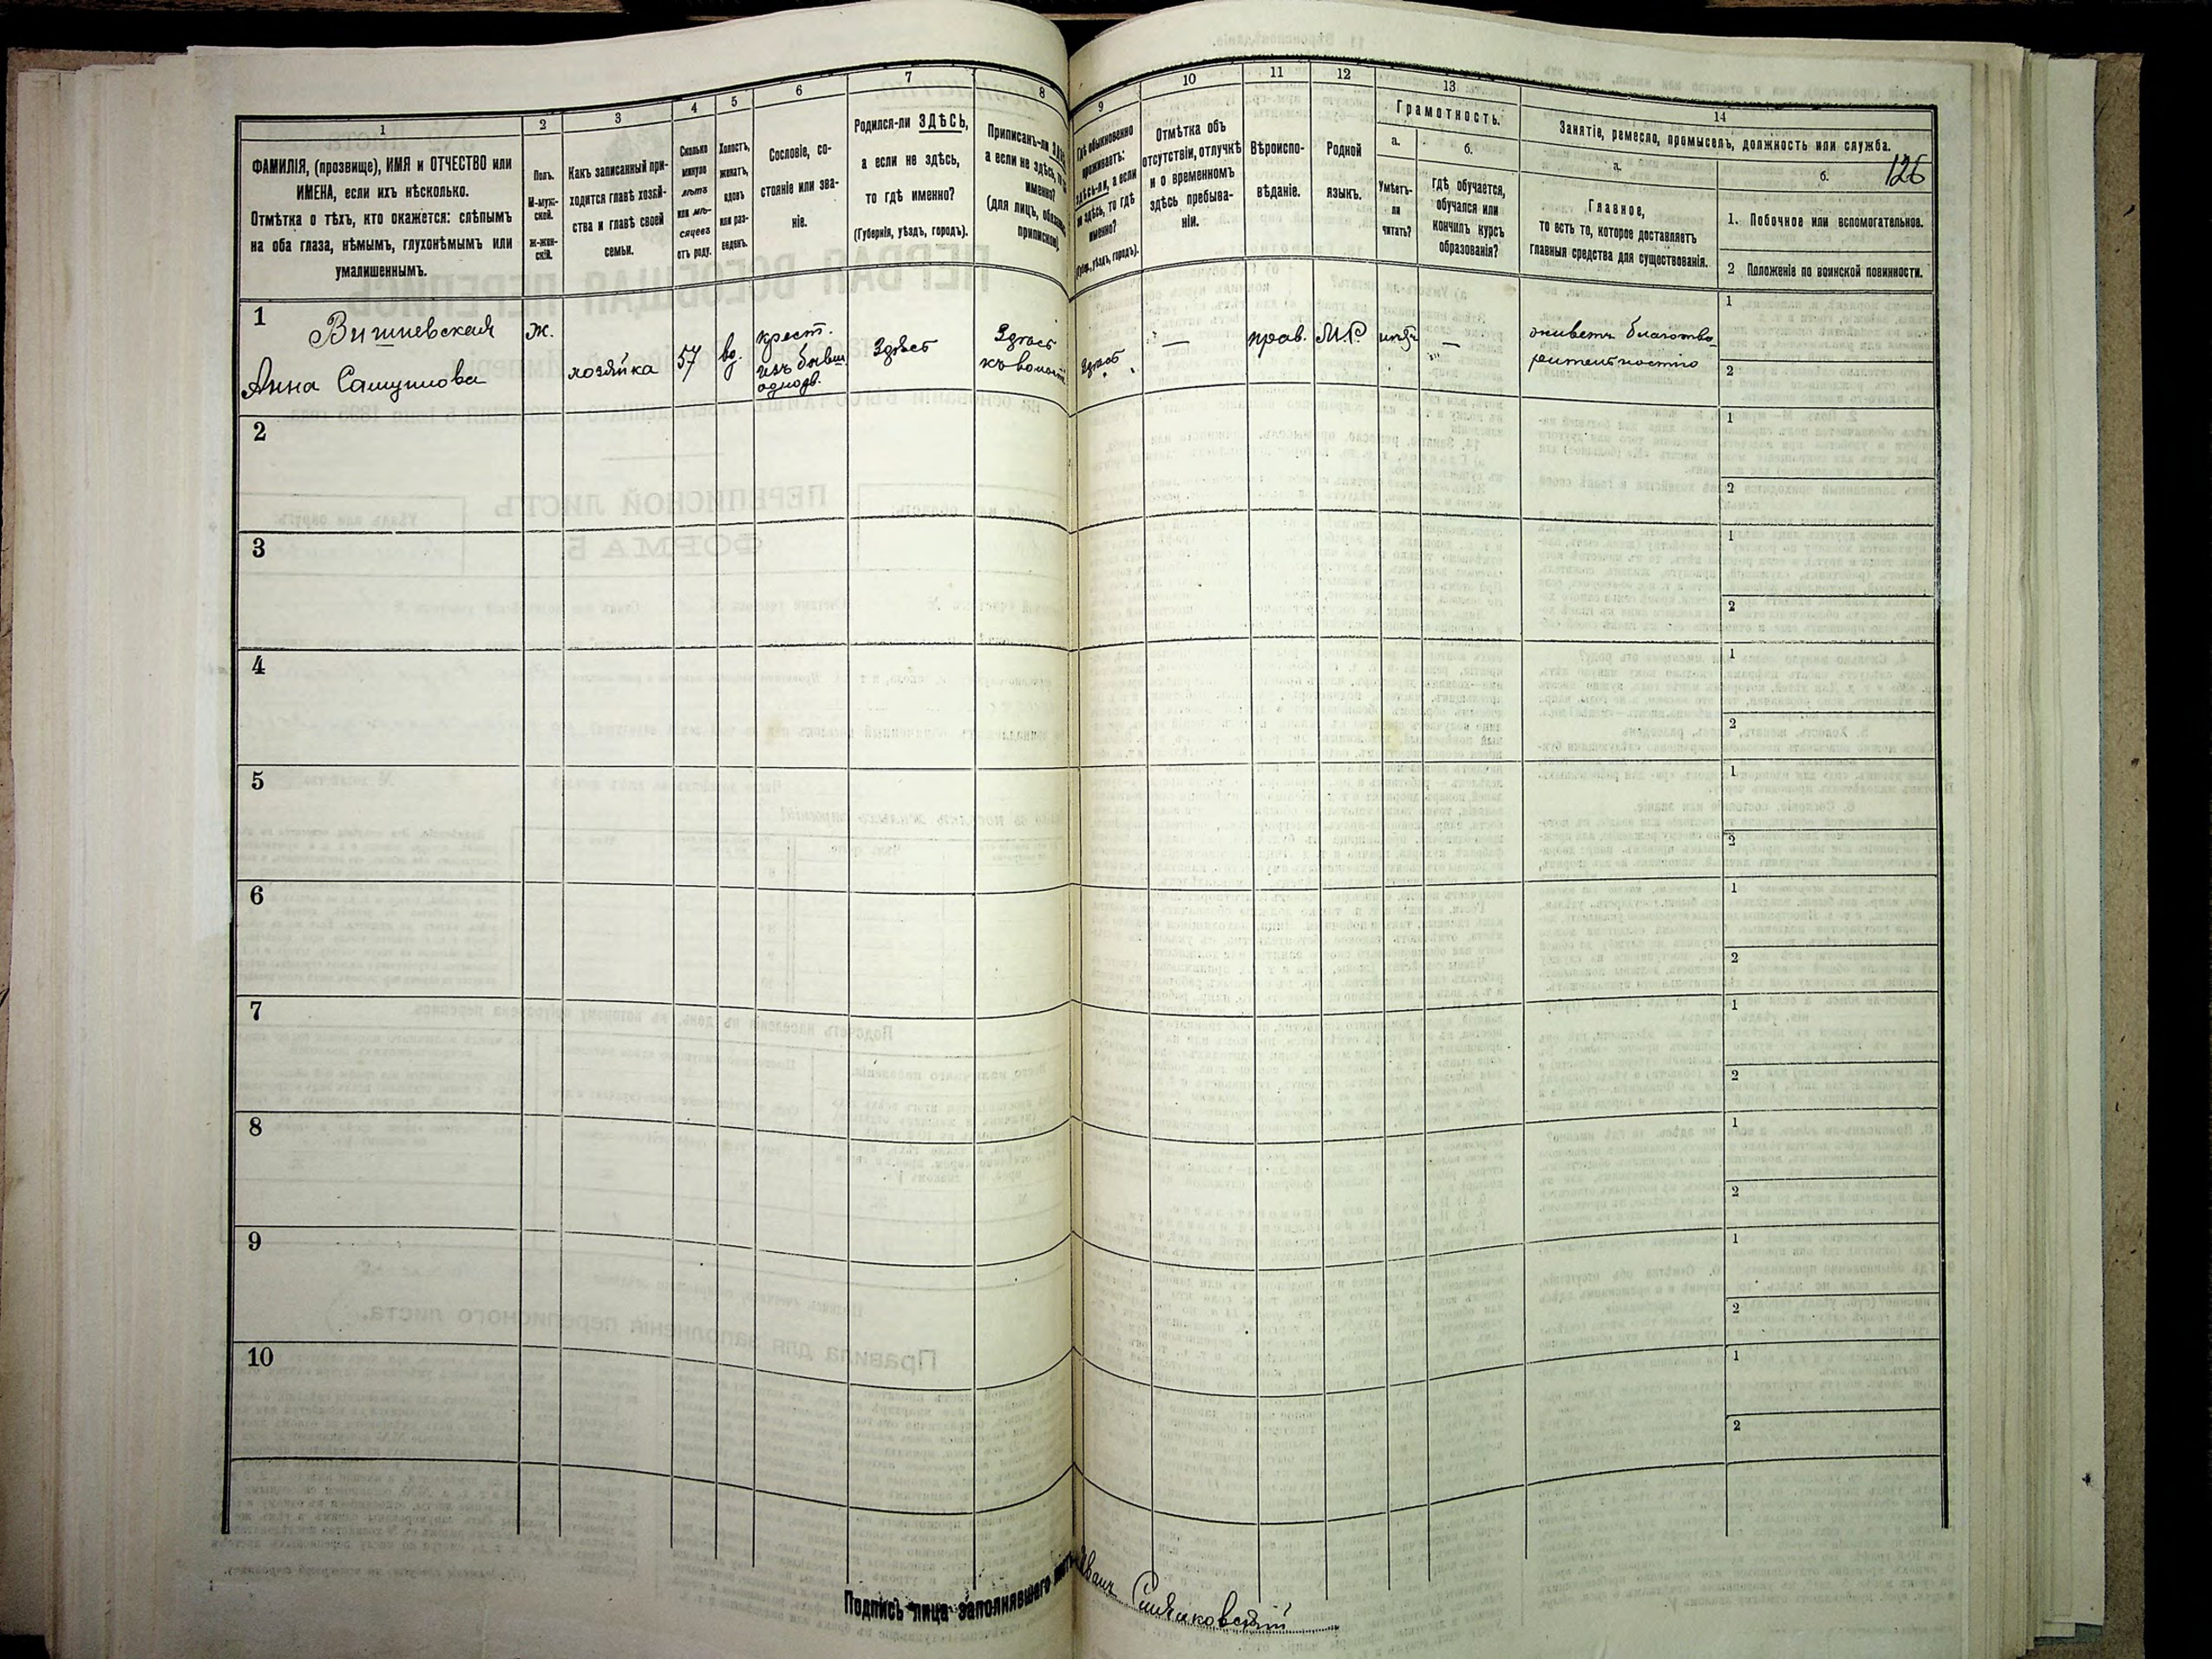 126
1
2
3
4
5
6
7
8
9
10
11
12
13
14
ФАМИЛІЯ, (прозвище), ИМЯ и ОТЧЕСТВО или
ИМЕНА, если ихъ нѣсколько.
Отмѣтка о тѣхъ, кто окажется: слѣпымъ
на оба глаза, нѣмымъ, глухонѣмымъ или
умалишеннымъ.
Полъ.
М-муж-
ской.
Ж-жен-
скій.
Какъ записанный при-
ходится главѣ хозяй-
ства и главѣ своей
семьи.
Сколько
минуло
лѣтъ
или мѣ-
сяцевъ
отъ роду.
Холостъ,
женатъ,
вдовъ
или раз-
веденъ.
Сословіе, со-
стояніе или зва-
ніе.
Родился-ли ЗДѢСЬ,
а если не здѣсь,
то гдѣ именно?
(Губернія, уѣздъ, городъ).
Приписанъ-ли
а если не здѣсь,
именно?
(для лицъ,
припиской)
Гдѣ обыкновенно
проживаетъ:
здѣсь-ли, а если
не здѣсь, то гдѣ
именно?
уѣздъ, городъ).
Отмѣтка объ
отсутствіи, отлучкѣ
и о временномъ
здѣсь пребыва-
ніи.
Вѣроиспо-
вѣданіе.
Родной
языкъ.
Грамотность.
а.
Умѣетъ-
ли
читать?
б.
гдѣ обучается,
обучался или
кончилъ курсъ
образованія?
Занятіе, ремесло, промыселъ, должность или служба.
а.
Главное,
то есть то, которое доставляетъ
главныя средства для существованія.
б.
1. Побочное или вспомогательное.
2 Положеніе по воинской повинности.
1
Вишневская
Анна Самуилова
ж.
хозяйка
57
вд.
крест.
изъ бывш.
однодв.
Здѣсь
Здѣсь
къ волост
Здѣсь
—
прав.
М.Р.
нѣтъ
—
живетъ благотво-
рительностію
1
2
2
1
2
3
1
2
4
1
2
5
1
2
6
1
2
7
1
2
8
1
2
9
1
2
10
1
2
Подпись лица заполнявшаго
Иванъ